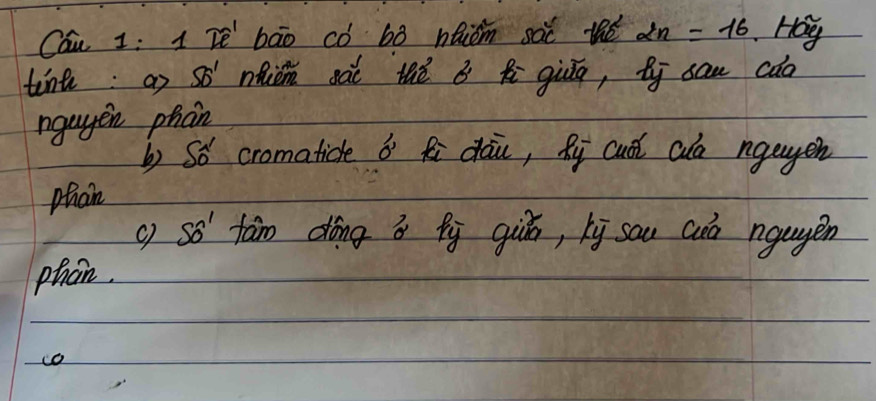 Câu 1: 1 Tế bào có bộ nhiễm sắc thể 2n = 16. Hãy
tính : a) Số nhiễm sắc thể ở kì giữa, kỳ sau của
nguyên phân
b) Số cromatide ở kì đầu, kỳ cuối của nguyên
phân
c) Số tâm động ở kỳ giữa, kỳ sau của nguyên
phân.